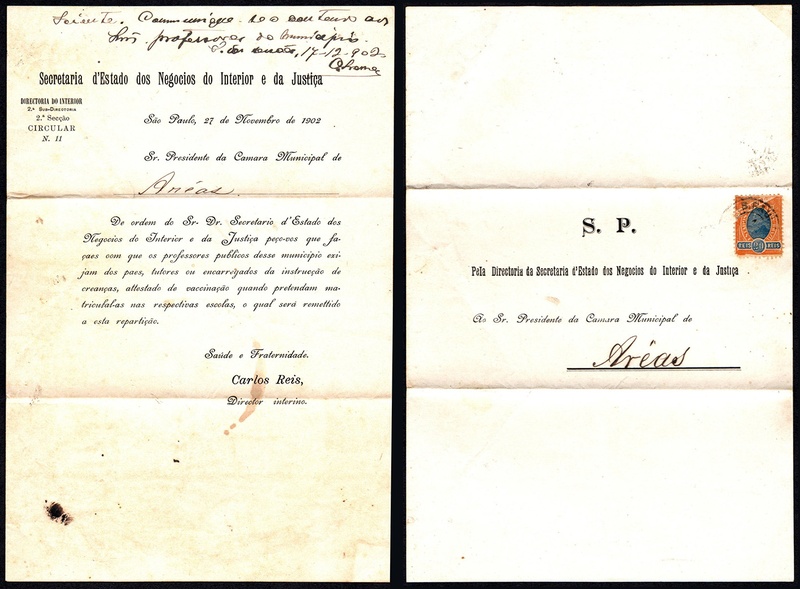 Sciente. Communique-se o conteudo aos
Snrs. professores do municipio.
17-12-902
Secretaria d'Estado dos Negocios do Interior e da Justiça
DIRECTORIA DO INTERIOR
2.ª SUB-DIRECTORIA
2.ª Secção
CIRCULAR
N. 11
São Paulo, 27 de Novembro de 1902
Sr. Presidente da Camara Municipal de
Aréas.
De ordem do Sr. Dr. Secretario d'Estado dos
Negocios do Interior e da Justiça peço-vos que fa-
çaes com que os professores publicos desse municipio exi-
jam dos paes, tutores ou encarregados da instrucção de
creanças, attestado de vaccinação quando pretendam ma-
triculal-as nas respectivas escolas, o qual será remettido
a esta repartição.
Saúde e Fraternidade.
Carlos Reis,
Director interino.
S. P.
REIS 20 REIS
Pela Directoria da Secretaria d'Estado dos Negocios do Interior e da Justiça
Ao Sr. Presidente da Camara Municipal de
Aréas